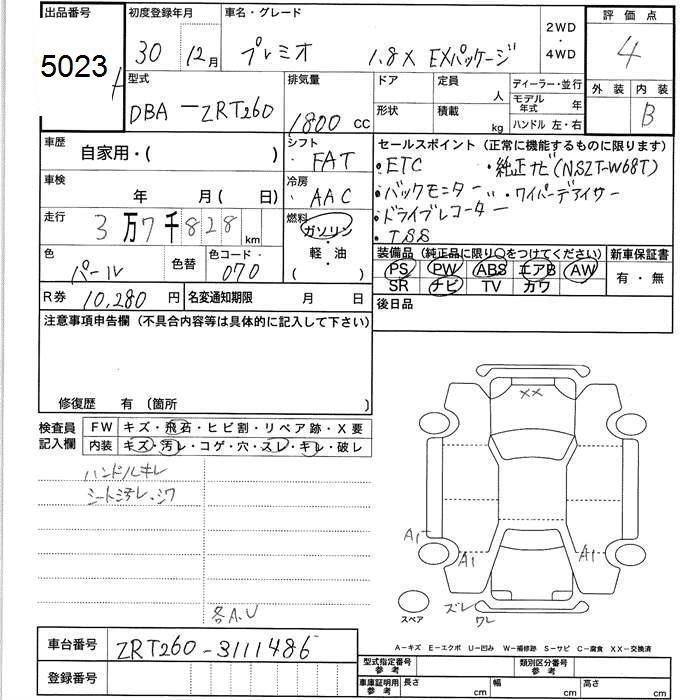 出品番号 初度登録年月 車名・グレード 2WD・4WD 評価点
5023 30 12月 プレミオ 1.8X EXパッケージ 4
型式 DBA-ZRT260 排気量 1800cc
ドア 定員 人 ディーラー・並行 外装 内装
形状 積載 kg モデル年式 年 B
ハンドル 左・右
車歴 自家用・( ) シフト FAT
セールスポイント (正常に機能するものに限ります)
・ETC ・純正ナビ(NSZT-W68T)
車検 年 月( 日) 冷房 AAC
・バックモニター 〃・ワイパーデアイサー
・ドライブレコーダー
・TSS
走行 3万7千828km 燃料 ガソリン・軽・油( )
色 パール 色替 色コード・070
装備品 (純正品に限り○をつけてください) 新車保証書
PS PW ABS エアB AW 有・無
SR ナビ TV カワ
R券 10,280円 名変通知期限 月 日
後日品
注意事項申告欄 (不具合内容等は具体的に記入して下さい)
修復歴 有 〔箇所 〕
検査員記入欄 FW キズ・飛石・ヒビ割・リペア跡・X要
内装 キズ・汚レ・コゲ・穴・スレ・キレ・破レ
ハンドルキレ
シート汚レ・シワ
各A.U
XX
A1
A1
A1
スペア
ズレ
ワレ
車台番号 ZRT260-3111486
登録番号
A-キズ E-エクボ U-凹み W-補修跡 S-サビ C-腐食 XX-交換済
型式指定番号参考 類別区分番号参考
車庫証明用参考 長さ cm 幅 cm 高さ cm